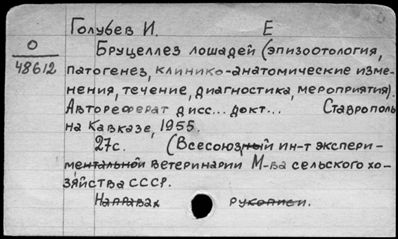 Голубев И. Е
О Бруцеллез лошадей (эпизоотология,
48612 патогенез, клинико-анатомические изме-
нения, течение, диагностика, мероприятия).
Автореферат дисс... докт... Ставрополь
на Кавказе, 1955.
27с. (Всесоюзный ин-т экспери-
ментальной ветеринарии М-ва сельского хо-
зяйства СССР.
На правах рукописи.